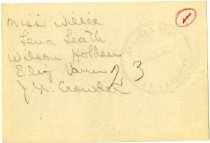 Miss Willie
Lena Leath
Wilson Holden
Eliz Vann 23
J. H. Crowder